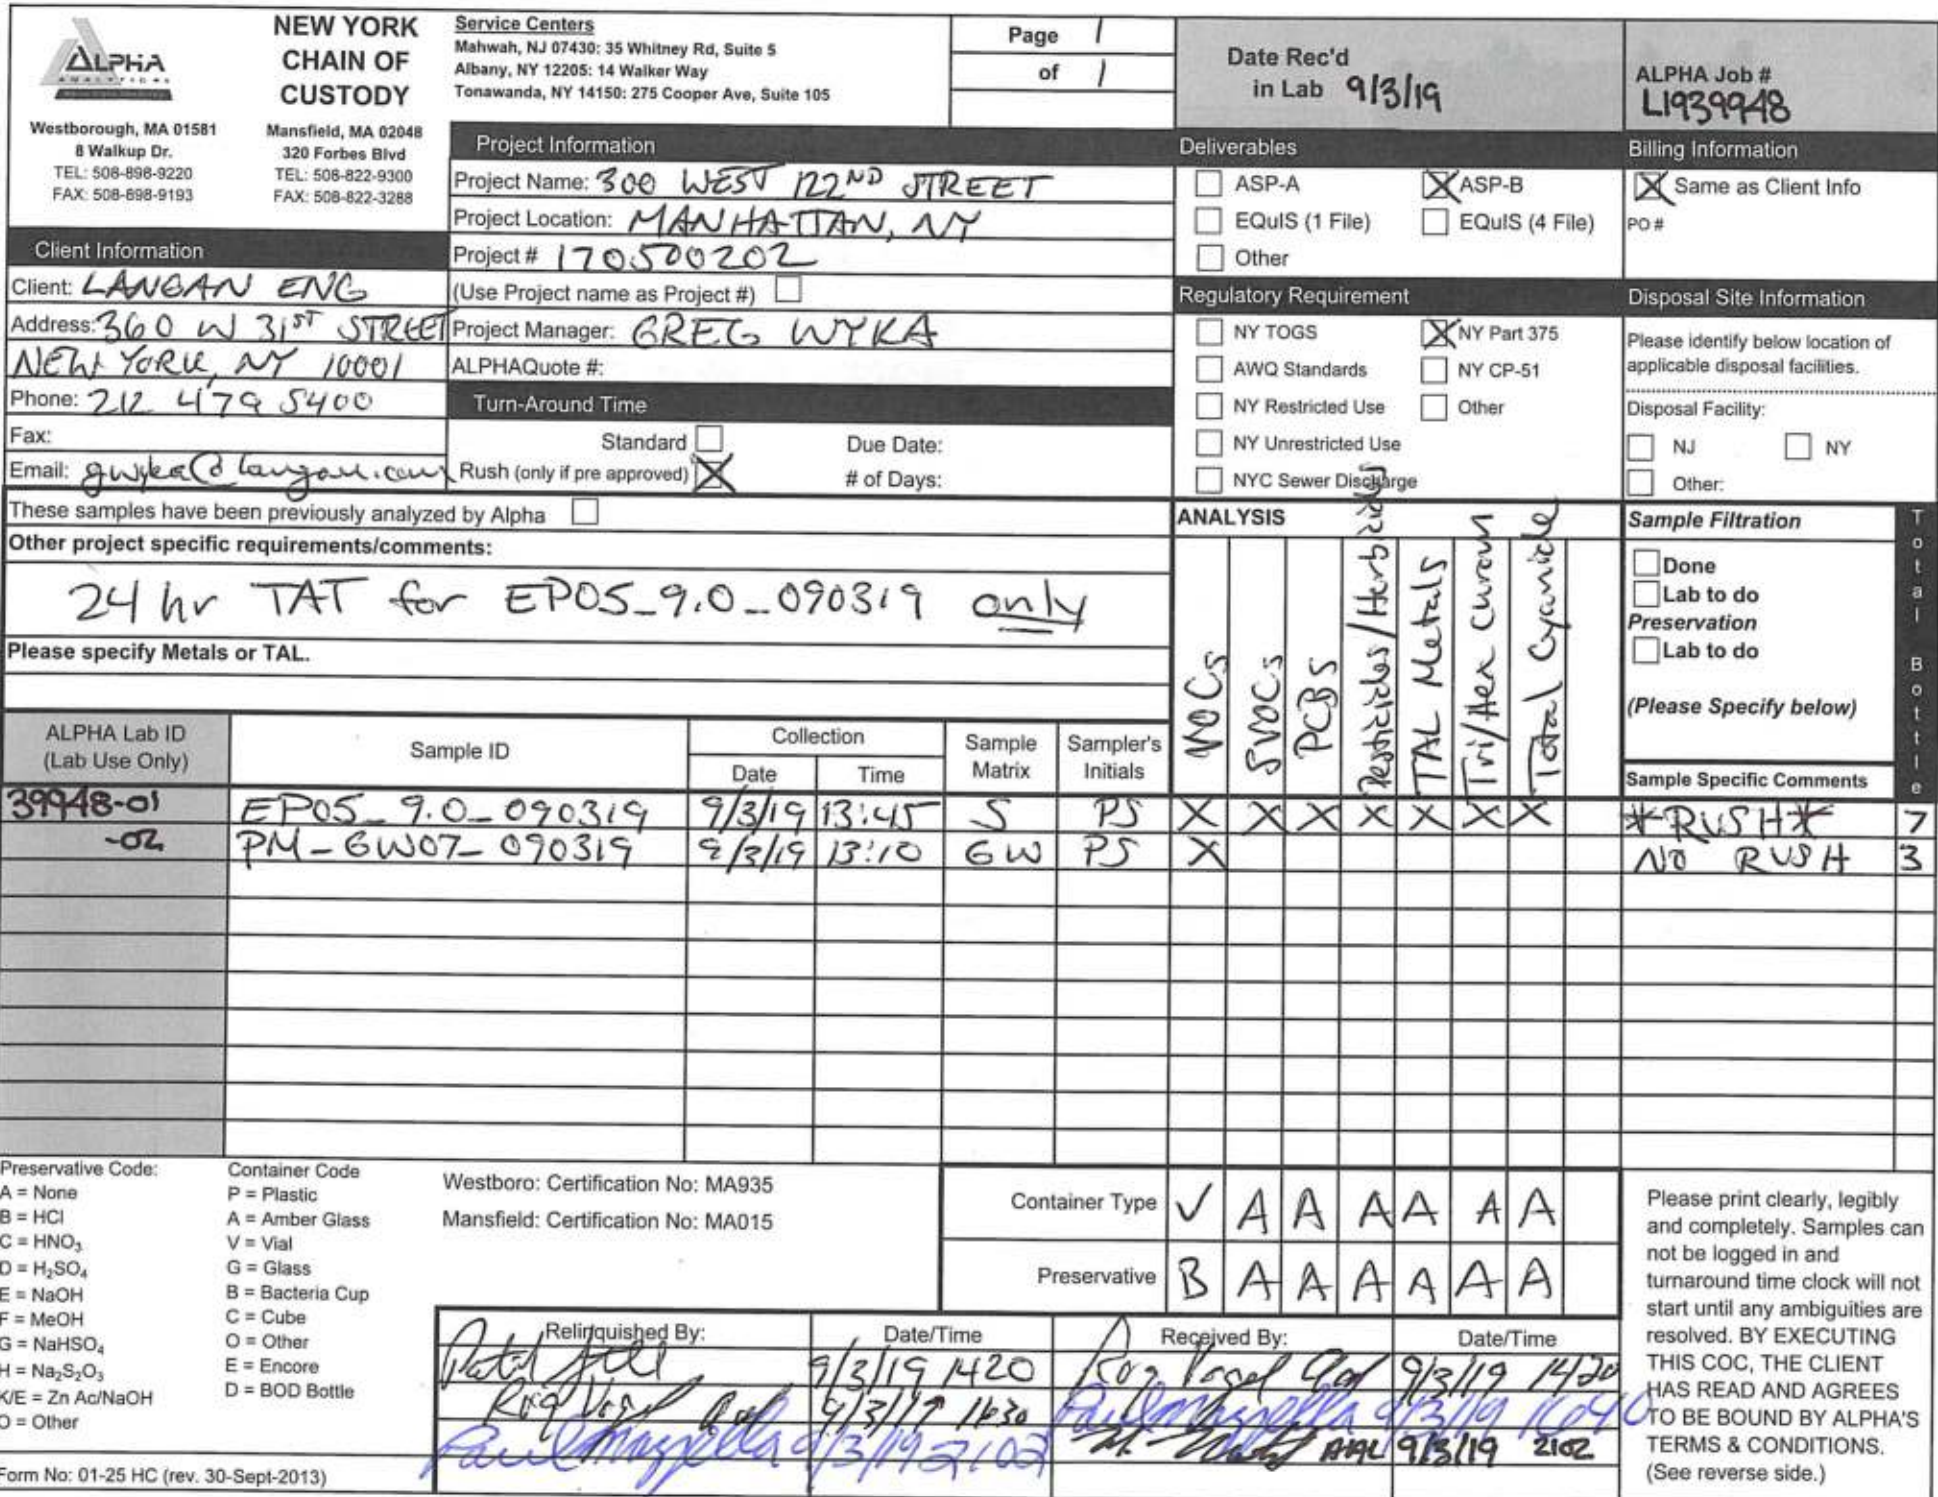 ALPHA
ANALYTICAL
NEW YORK
CHAIN OF
CUSTODY
Westborough, MA 01581
8 Walkup Dr.
TEL: 508-898-9220
FAX: 508-898-9193
Mansfield, MA 02048
320 Forbes Blvd
TEL: 508-822-9300
FAX: 508-822-3288
Service Centers
Mahwah, NJ 07430: 35 Whitney Rd, Suite 5
Albany, NY 12205: 14 Walker Way
Tonawanda, NY 14150: 275 Cooper Ave, Suite 105
Page 1
of 1
Date Rec'd
in Lab 9/3/19
ALPHA Job #
L1939948
Project Information
Project Name: 300 WEST 122ND STREET
Project Location: MANHATTAN, NY
Project # 170500202
(Use Project name as Project #)
Project Manager: GREG WYKA
ALPHAQuote #:
Client Information
Client: LANGAN ENG
Address: 360 W 31ST STREET
NEW YORK, NY 10001
Phone: 212 479 5400
Fax:
Email: gwyka@langan.com
Turn-Around Time
Standard
Due Date:
Rush (only if pre approved) X
# of Days:
Deliverables
ASP-A
X ASP-B
EQuIS (1 File)
EQuIS (4 File)
Other
Billing Information
X Same as Client Info
PO #
Regulatory Requirement
NY TOGS
X NY Part 375
AWQ Standards
NY CP-51
NY Restricted Use
Other
NY Unrestricted Use
NYC Sewer Discharge
Disposal Site Information
Please identify below location of
applicable disposal facilities.
Disposal Facility:
NJ
NY
Other:
These samples have been previously analyzed by Alpha
Other project specific requirements/comments:
24 hr TAT for EP05_9.0_090319 only
Please specify Metals or TAL.
ANALYSIS
VOCs
SVOCs
PCBs
Pesticides/Herbicides
TAL Metals
Tri/Hex Curom
Total Cyanide
Sample Filtration
Done
Lab to do
Preservation
Lab to do
(Please Specify below)
Total Bottle
ALPHA Lab ID
(Lab Use Only)
Sample ID
Collection
Date
Time
Sample
Matrix
Sampler's
Initials
Sample Specific Comments
39948-01 EP05_9.0_090319 9/3/19 13:45 S PS X X X X X X X *RUSH* 7
-02 PM_GW07_090319 9/3/19 13:10 GW PS X NO RUSH 3
Preservative Code:
A = None
B = HCl
C = HNO3
D = H2SO4
E = NaOH
F = MeOH
G = NaHSO4
H = Na2S2O3
K/E = Zn Ac/NaOH
O = Other
Container Code
P = Plastic
A = Amber Glass
V = Vial
G = Glass
B = Bacteria Cup
C = Cube
O = Other
E = Encore
D = BOD Bottle
Westboro: Certification No: MA935
Mansfield: Certification No: MA015
Container Type V A A A A A A
Preservative B A A A A A A
Relinquished By:
Date/Time
Received By:
Date/Time
9/3/19 1420
9/3/19 1420
9/3/19 1630
Paul Mazzella 9/3/19 1640
Paul Mazzella 9/3/19 2102
AAL 9/3/19 2102
Please print clearly, legibly
and completely. Samples can
not be logged in and
turnaround time clock will not
start until any ambiguities are
resolved. BY EXECUTING
THIS COC, THE CLIENT
HAS READ AND AGREES
TO BE BOUND BY ALPHA'S
TERMS & CONDITIONS.
(See reverse side.)
Form No: 01-25 HC (rev. 30-Sept-2013)